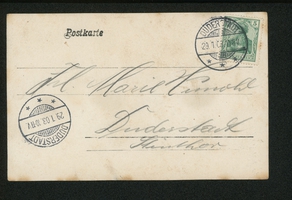 Postkarte
DUDERSTADT
29.1.03
Frl. Marie
Duderstadt
Steinthor.
DUDERSTADT
29.1.03